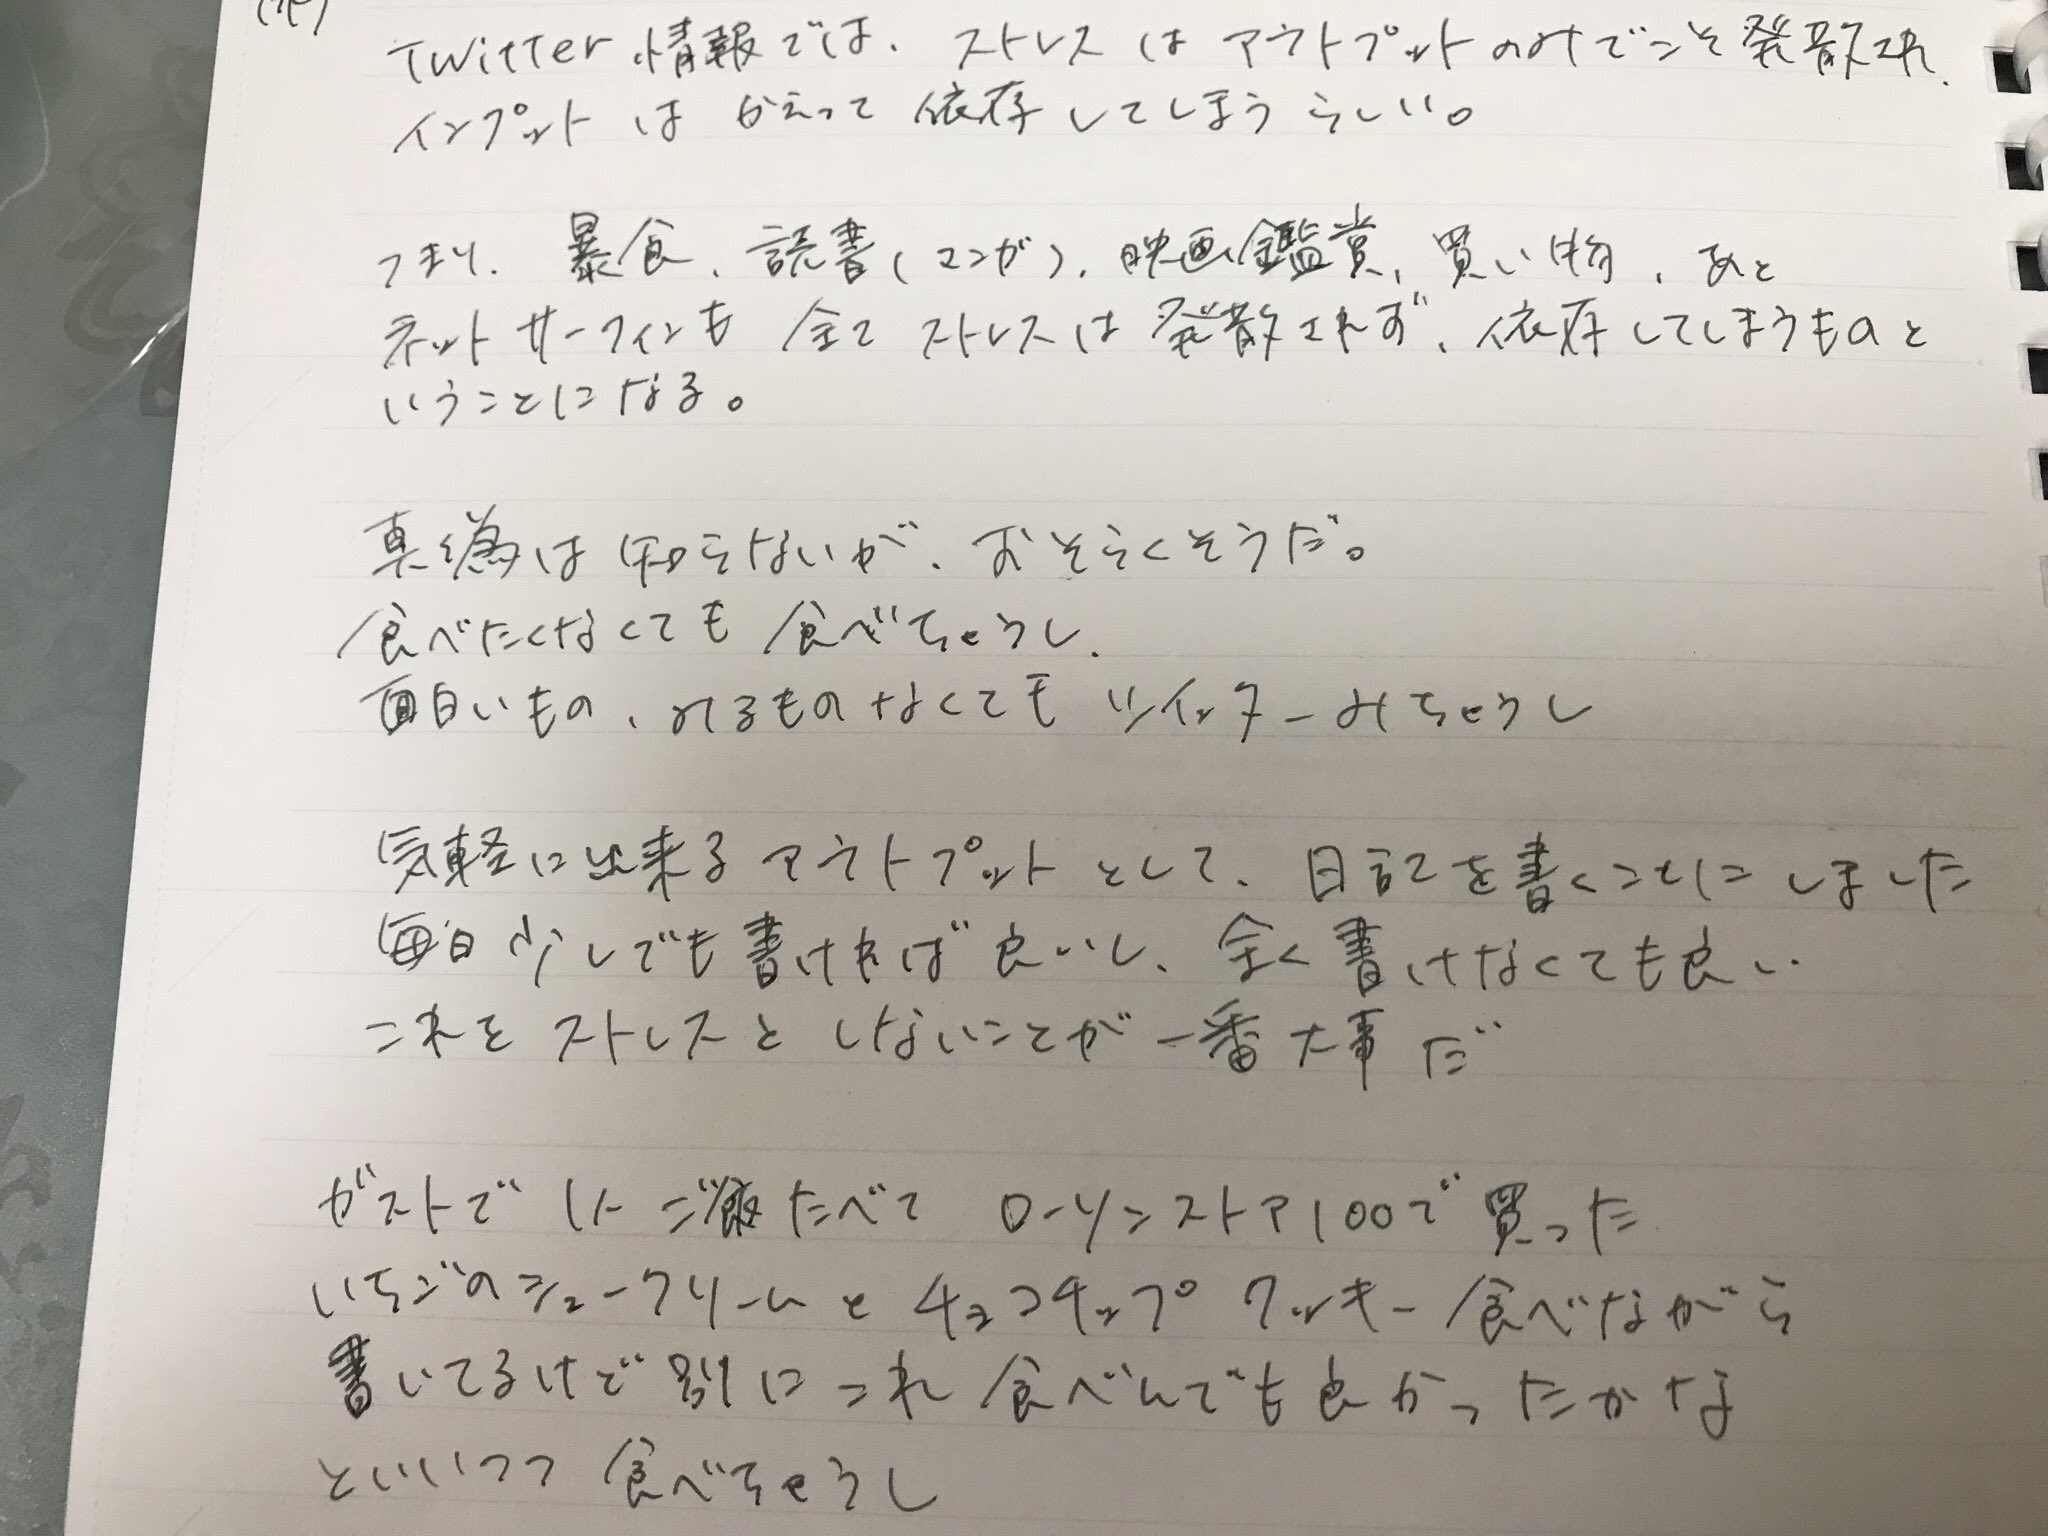 Twitter情報では、ストレスはアウトプットのみでこそ発散され、
インプットはかえって依存してしまうらしい。
つまり、暴食、読書(マンガ)、映画鑑賞、買い物、あと
ネットサーフィンも全てストレスは発散されず、依存してしまうものと
いうことになる。
真偽は知らないが、おそらくそうだ。
食べたくなくても食べちゃうし、
面白いもの、みるものなくてもツイッターみちゃうし
気軽に出来るアウトプットとして、日記を書くことにしました
毎日少しでも書ければ良いし、全く書けなくても良い
これをストレスとしないことが一番大事だ
ガストで ご飯たべて ローソンストア100で買った
いちごのシュークリームとチョコチップクッキー食べながら
書いてるけど別にこれ食べんでも良かったかな
といいつつ食べちゃうし